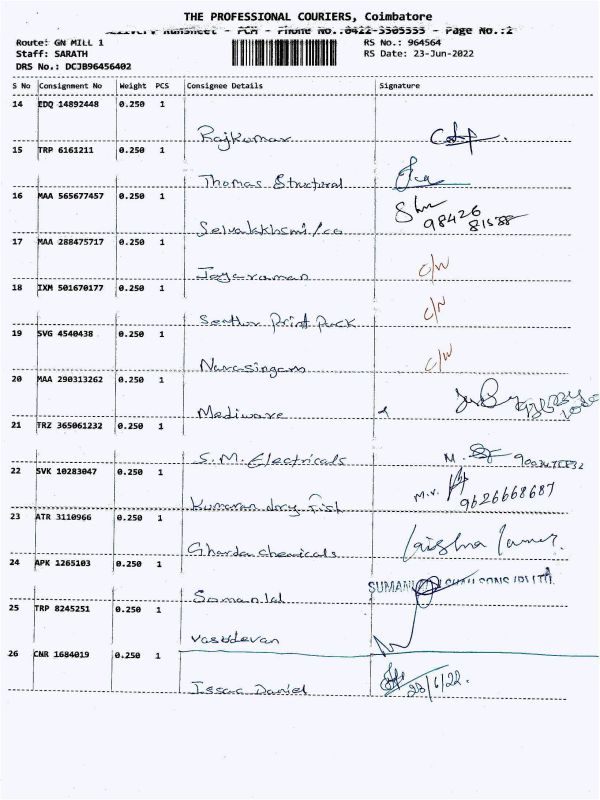 THE PROFESSIONAL COURIERS, Coimbatore
Delivery Runsheet - PCM - Phone No.:0422-3505555 - Page No.:2
Route: GN MILL 1
RS No.: 964564
Staff: SARATH
RS Date: 23-Jun-2022
DRS No.: DCJB96456402
S No Consignment No Weight PCS Consignee Details Signature
14 EDQ 14892448 0.250 1
Rajkumar
15 TRP 6161211 0.250 1
Thomas Structural
16 MAA 565677457 0.250 1
Selvalakhsmi/co
98426
17 MAA 288475717 0.250 1
Jayaraman C/N
18 IXM 501670177 0.250 1
Print Pack C/N
19 SVG 4540438 0.250 1
Narasingam C/N
20 MAA 290313262 0.250 1
Mediware
21 TRZ 365061232 0.250 1
S.M. Electricals M.
22 SVK 10283047 0.250 1
Kumaran dry Fist M.V. 9626668687
23 ATR 3110966 0.250 1
Gharda chemicals
24 APK 1265103 0.250 1
Somanlal
25 TRP 8245251 0.250 1
Vasudevan
26 CNR 1684019 0.250 1
Issac Daniel 23/6/22.